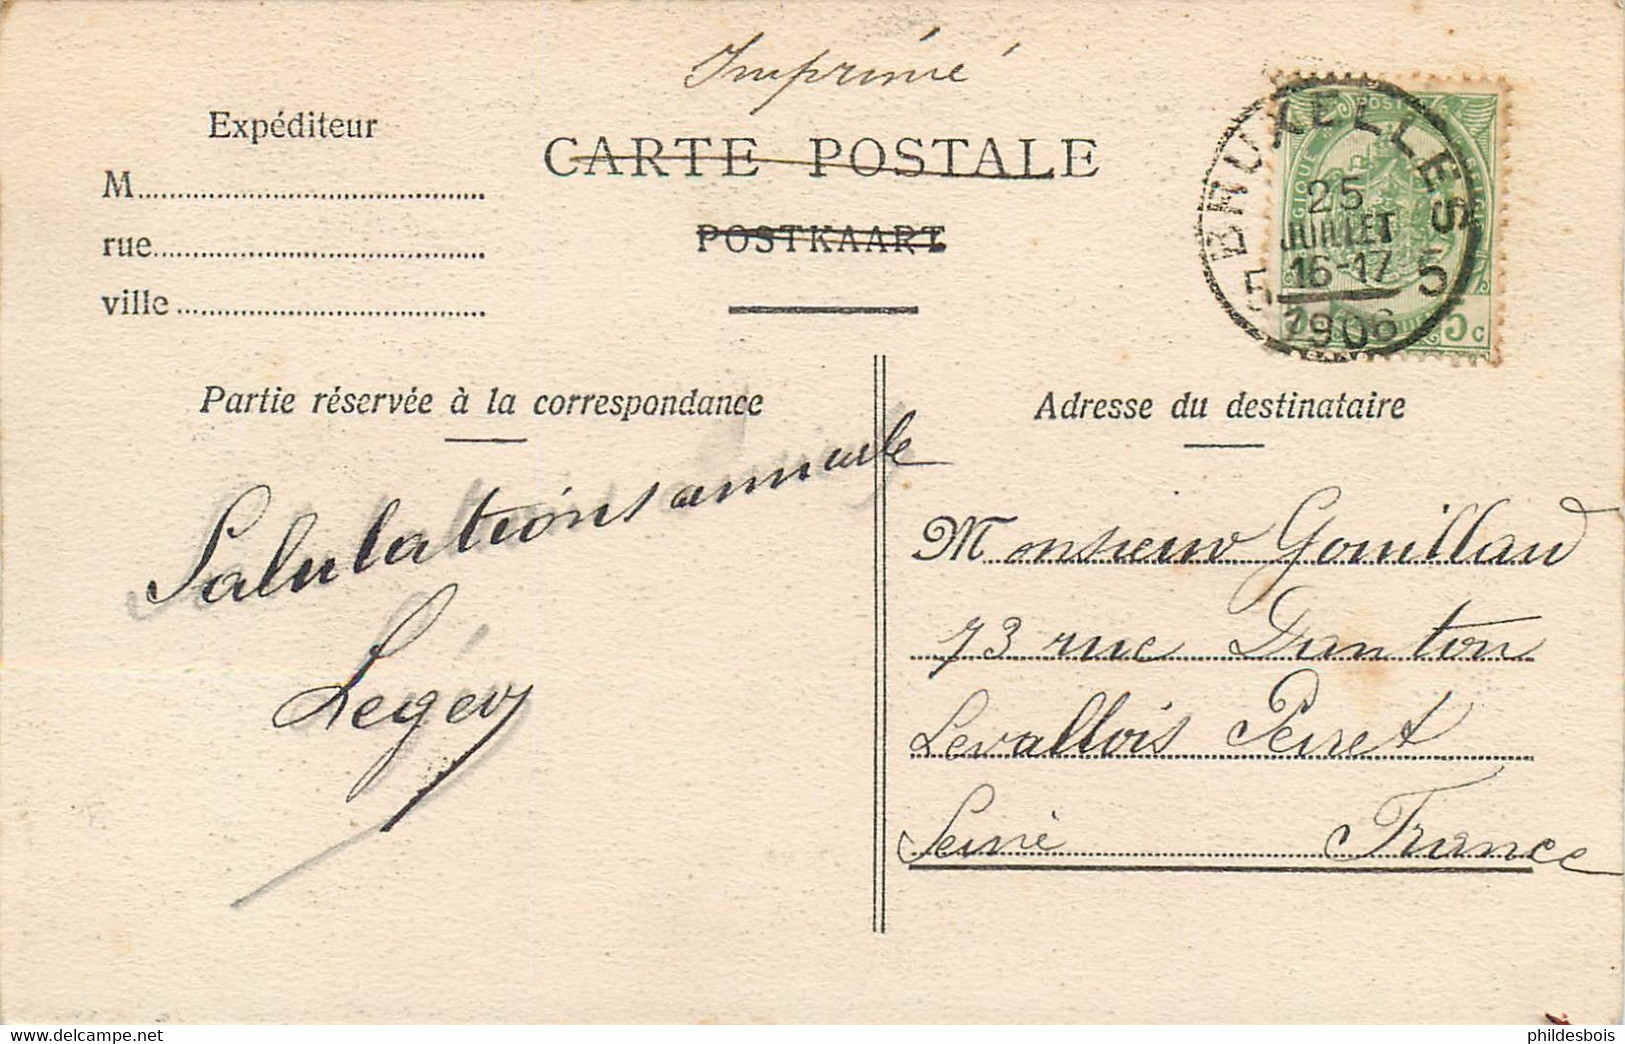 Imprimé
Expéditeur
CARTE POSTALE
M
POSTKAART
rue
ville
BRUXELLES
25
JUILLET
16-17
5 5
1906
5c
Partie réservée à la correspondance
Adresse du destinataire
Salutations
Monsieur Gouillaud
73 rue Danton
Levallois Perret
Seine France
www.delcampe.net
phildesbois